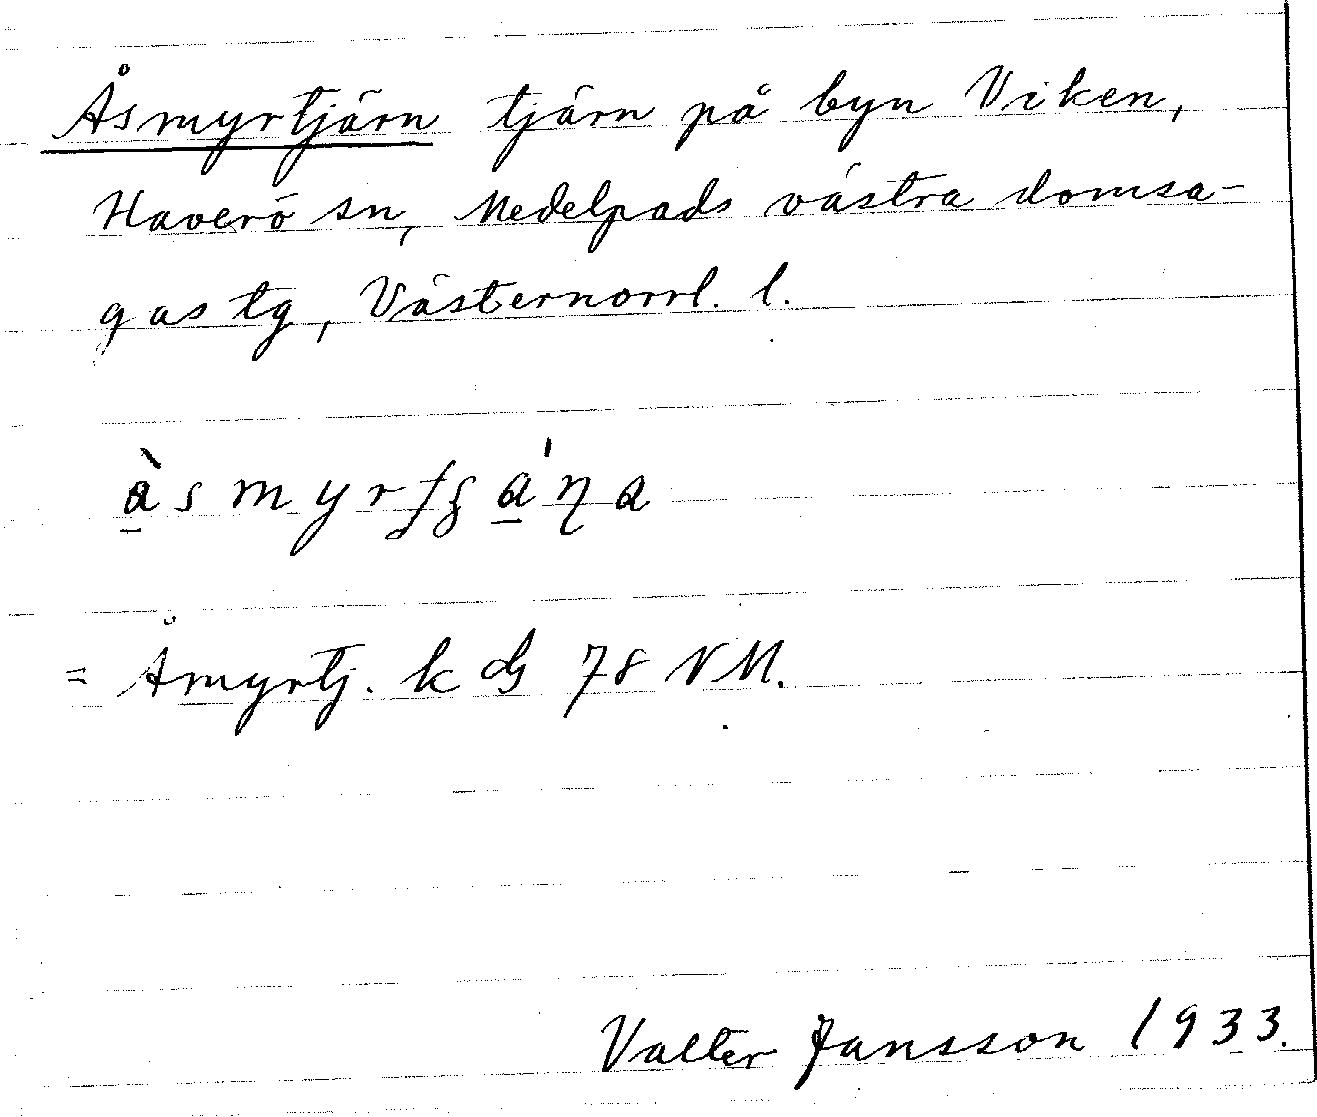 Åsmyrtjärn tjärn på byn Viken,
Haverö sn, Medelpads västra domsa-
gas tg, Västernorrl. l.
= Åmyrtj. k 78 NM.
Valter Jansson 1933.